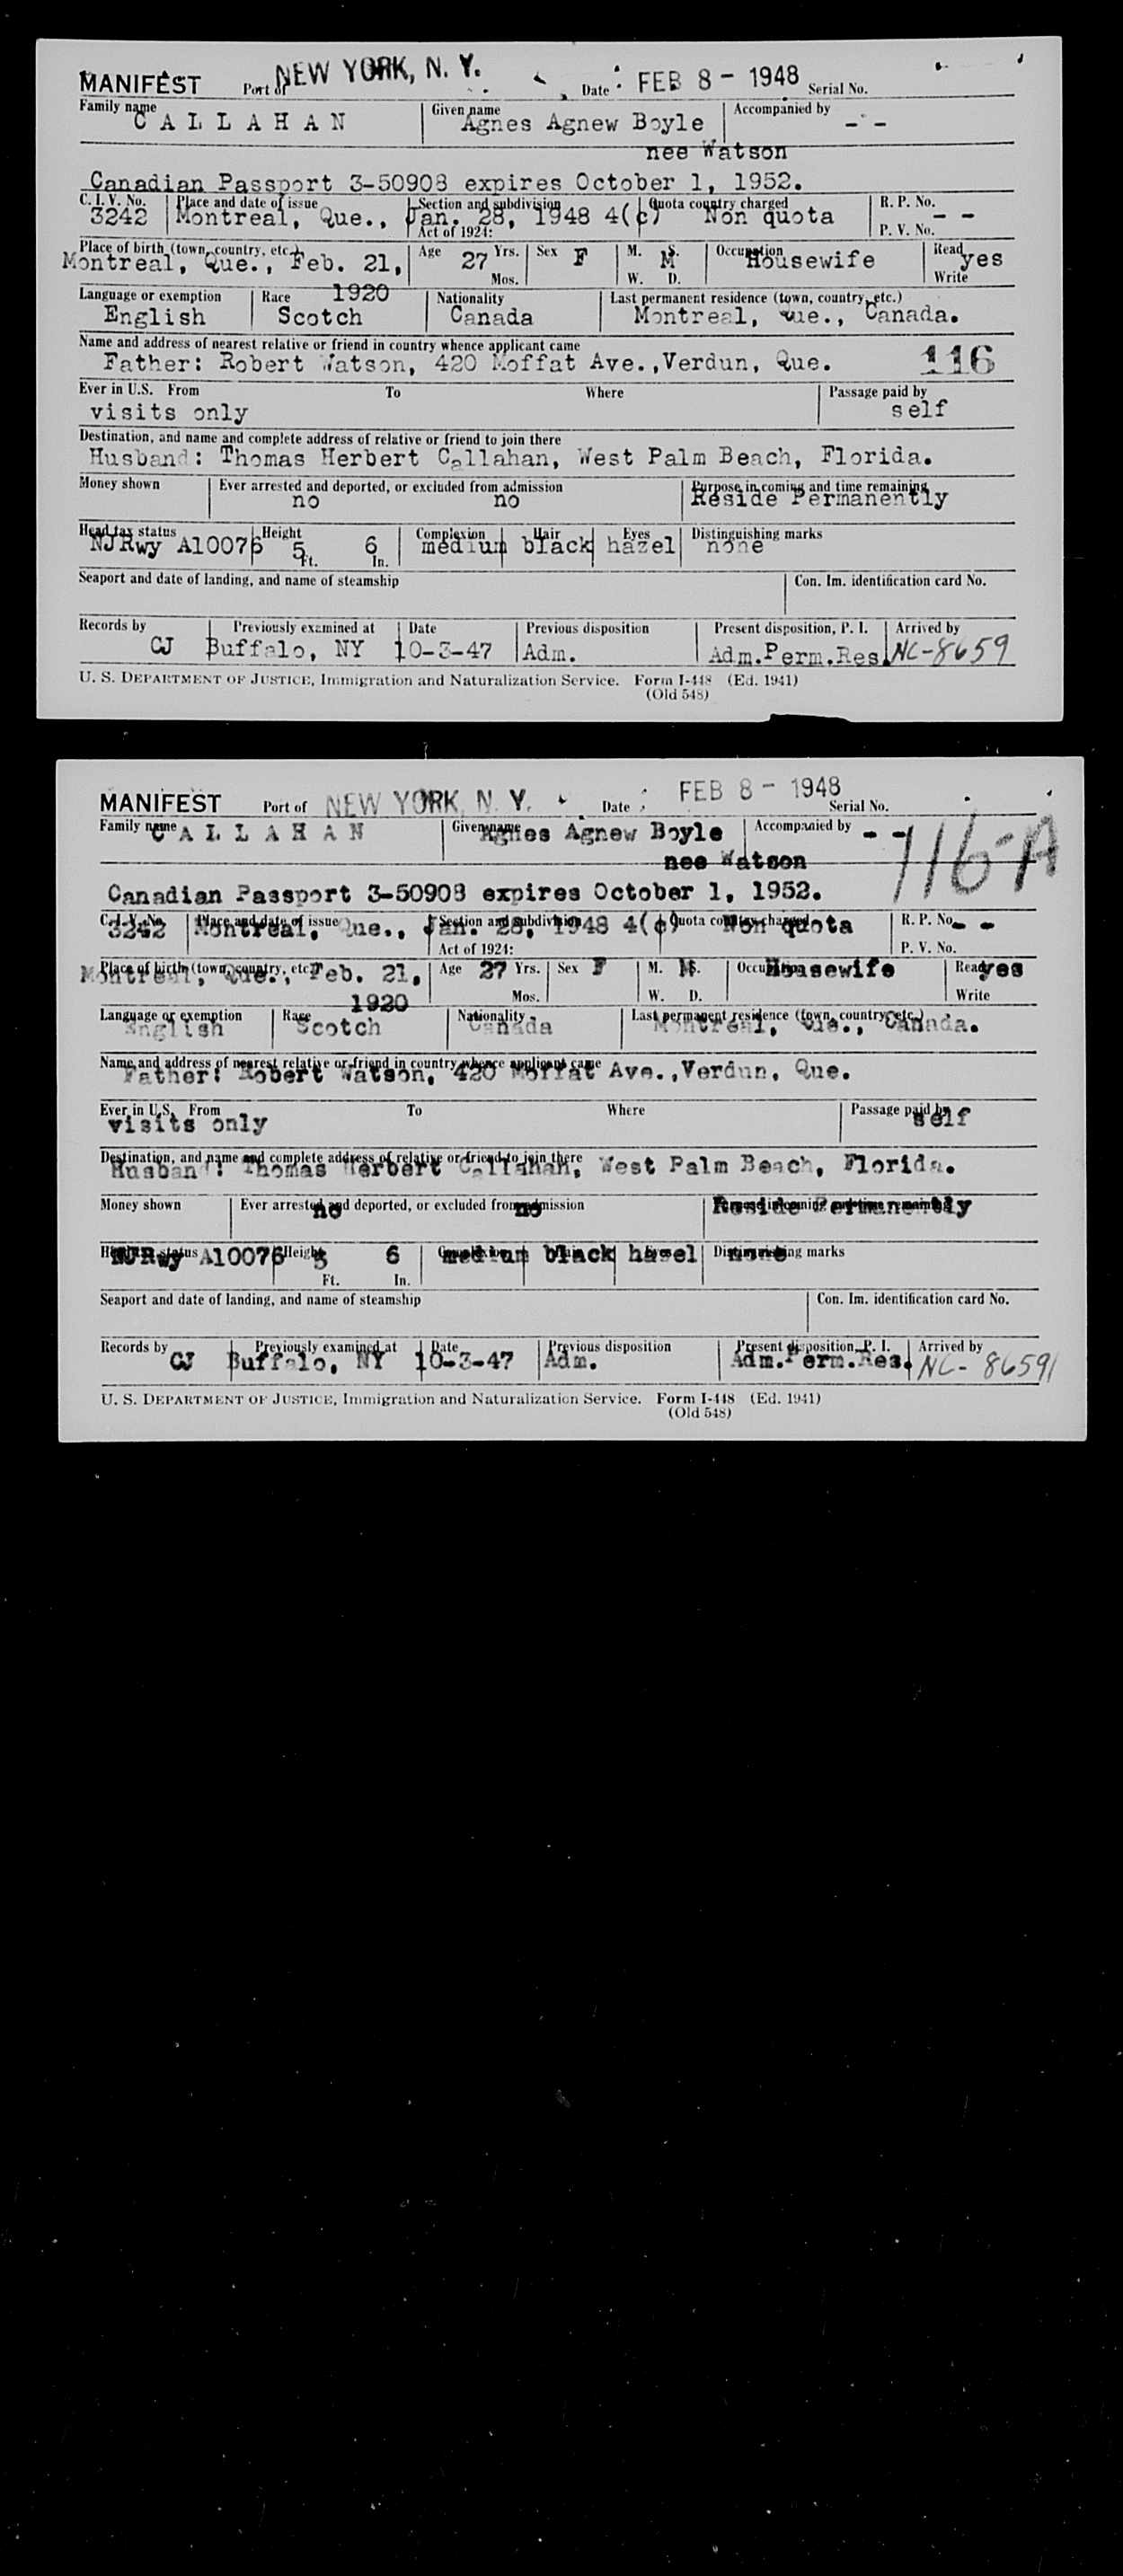 MANIFEST Port of NEW YORK, N. Y. Date FEB 8 - 1948 Serial No.
Family name CALLAHAN Given name Agnes Agnew Boyle Accompanied by - -
nee Watson
Canadian Passport 3-50908 expires October 1, 1952.
C. I. V. No. 3242 Place and date of issue Montreal, Que., Jan. 28, 1948 Section and subdivision Act of 1924: 4(c) Quota country charged Non quota R. P. No. - - P. V. No.
Place of birth (town, country, etc.) Montreal, Que., Feb. 21, 1920 Age 27 Yrs. Mos. Sex F M. S. W. D. M Occupation Housewife Read yes Write
Language or exemption English Race Scotch Nationality Canada Last permanent residence (town, country, etc.) Montreal, Que., Canada.
Name and address of nearest relative or friend in country whence applicant came
Father: Robert Watson, 420 Moffat Ave.,Verdun, Que. 116
Ever in U.S. From To Where Passage paid by
visits only self
Destination, and name and complete address of relative or friend to join there
Husband: Thomas Herbert Callahan, West Palm Beach, Florida.
Money shown Ever arrested and deported, or excluded from admission Purpose in coming and time remaining
no no Reside Permanently
Head tax status NJRwy A10076 Height 5 Ft. 6 In. Complexion medium Hair black Eyes hazel Distinguishing marks none
Seaport and date of landing, and name of steamship Con. Im. identification card No.
Records by Previously examined at Date Previous disposition Present disposition, P. I. Arrived by
CJ Buffalo, NY 10-3-47 Adm. Adm.Perm.Res. NC-8659
U. S. DEPARTMENT OF JUSTICE, Immigration and Naturalization Service. Form I-448 (Ed. 1941)
(Old 548)
MANIFEST Port of NEW YORK, N. Y. Date FEB 8 - 1948 Serial No.
Family name CALLAHAN Given name Agnes Agnew Boyle Accompanied by - - 116-A
nee Watson
Canadian Passport 3-50908 expires October 1, 1952.
C. I. V. No. 3242 Place and date of issue Montreal, Que., Jan. 28, 1948 Section and subdivision Act of 1924: 4(c) Quota country charged Non quota R. P. No. - - P. V. No.
Place of birth (town, country, etc.) Montreal, Que., Feb. 21, 1920 Age 27 Yrs. Mos. Sex F M. S. W. D. M Occupation Housewife Read yes Write
Language or exemption English Race Scotch Nationality Canada Last permanent residence (town, country, etc.) Montreal, Que., Canada.
Name and address of nearest relative or friend in country whence applicant came
Father: Robert Watson, 420 Moffat Ave.,Verdun, Que.
Ever in U.S. From To Where Passage paid by
visits only self
Destination, and name and complete address of relative or friend to join there
Husband: Thomas Herbert Callahan, West Palm Beach, Florida.
Money shown Ever arrested and deported, or excluded from admission Purpose in coming and time remaining
no no Reside Permanently
Head tax status NJRwy A10076 Height 5 Ft. 6 In. Complexion medium Hair black Eyes hazel Distinguishing marks none
Seaport and date of landing, and name of steamship Con. Im. identification card No.
Records by Previously examined at Date Previous disposition Present disposition, P. I. Arrived by
CJ Buffalo, NY 10-3-47 Adm. Adm.Perm.Res. NC-8659
U. S. DEPARTMENT OF JUSTICE, Immigration and Naturalization Service. Form I-448 (Ed. 1941)
(Old 548)